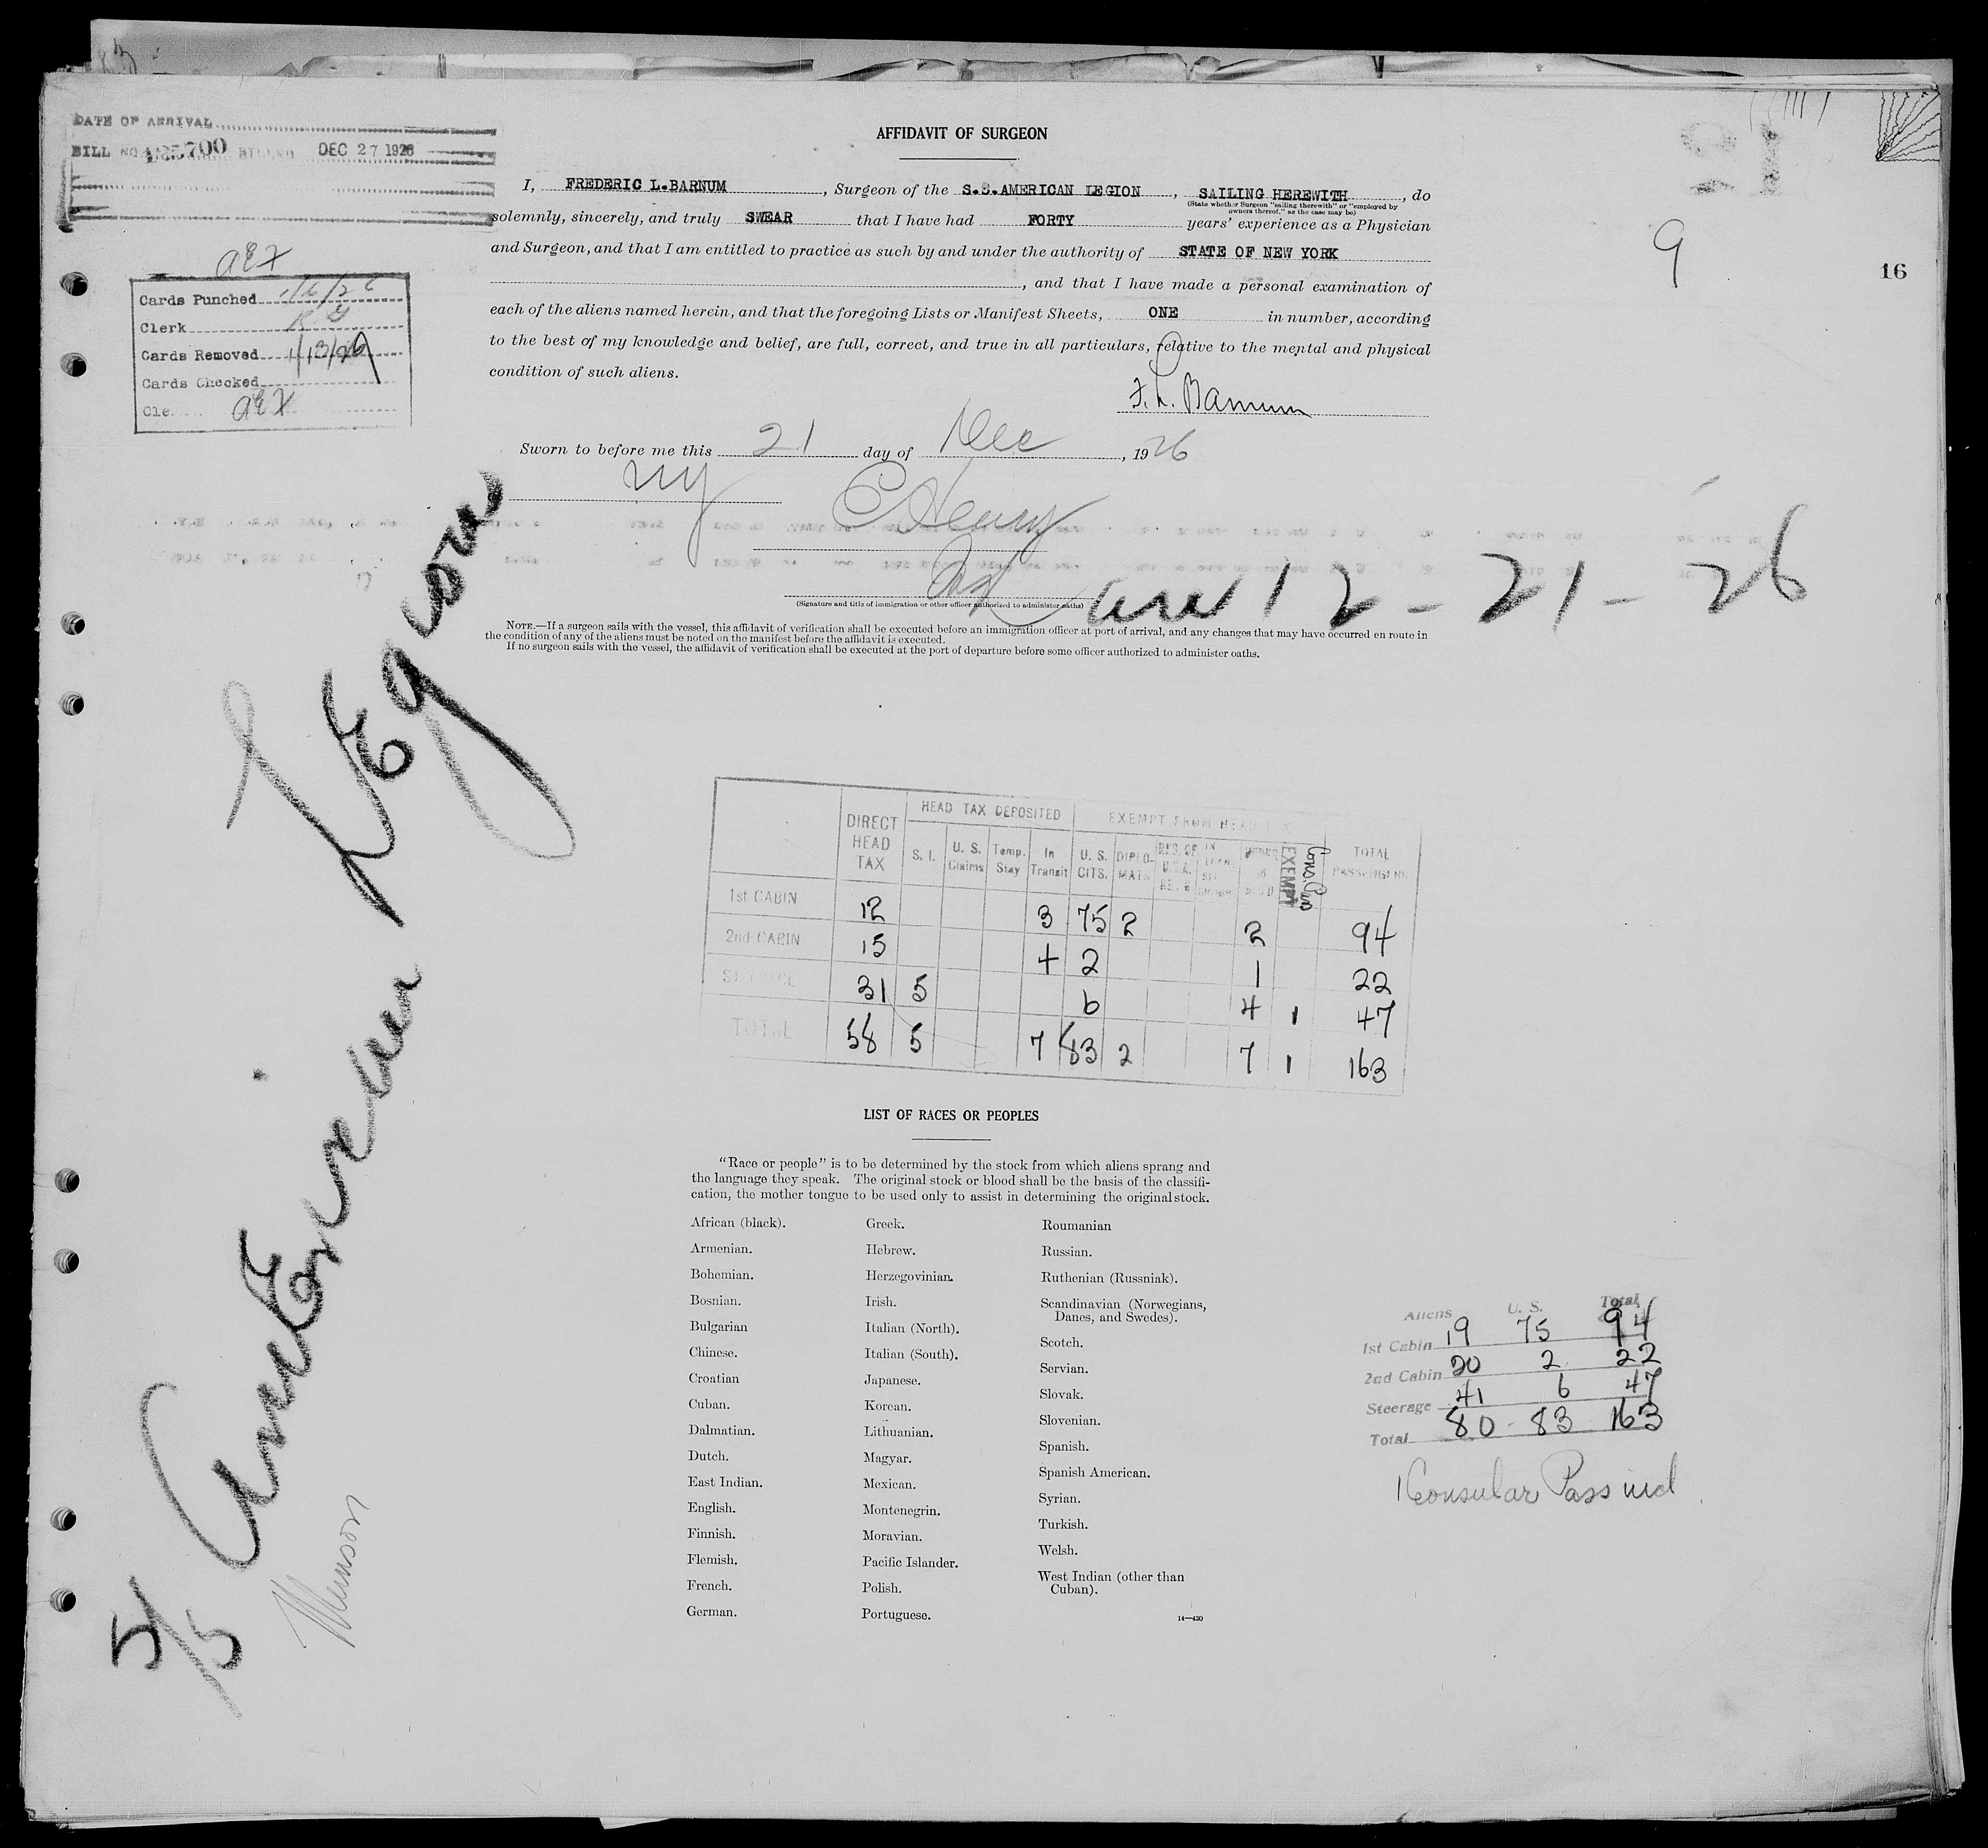 DATE OF ARRIVAL
BILL NO. DEC 27 1926
AFFIDAVIT OF SURGEON
I, FREDERIC L. BARNUM, Surgeon of the S.S. AMERICAN LEGION, SAILING HEREWITH, do
(State whether Surgeon "sailing therewith" or "employed by
owners thereof," as the case may be)
solemnly, sincerely, and truly SWEAR that I have had FORTY years' experience as a Physician
and Surgeon, and that I am entitled to practice as such by and under the authority of STATE OF NEW YORK
, and that I have made a personal examination of
each of the aliens named herein, and that the foregoing Lists or Manifest Sheets, ONE in number, according
to the best of my knowledge and belief, are full, correct, and true in all particulars, relative to the mental and physical
condition of such aliens.
F. L. Barnum
9
16
Cards Punched
Clerk
Cards Removed
Cards Checked
Cle
Sworn to before me this 21 day of Dec, 1926
NY
C Henry
(Signature and title of immigration or other officer authorized to administer oaths)
arr 12-21-26
NOTE.—If a surgeon sails with the vessel, this affidavit of verification shall be executed before an immigration officer at port of arrival, and any changes that may have occurred en route in
the condition of any of the aliens must be noted on the manifest before the affidavit is executed.
If no surgeon sails with the vessel, the affidavit of verification shall be executed at the port of departure before some officer authorized to administer oaths.
American Legion
Munson
5/5
HEAD TAX DEPOSITED EXEMPT FROM HEAD TAX
DIRECT HEAD TAX S. I. U. S. Claims Temp. Stay In Transit U. S. CITS. DIPLO-MATS EXEMPT TOTAL PASSENGERS
1st CABIN 12 3 75 2 2 94
2nd CABIN 15 4 2 1 22
STEERAGE 31 5 6 4 1 47
TOTAL 58 5 7 83 2 7 1 163
LIST OF RACES OR PEOPLES
"Race or people" is to be determined by the stock from which aliens sprang and
the language they speak. The original stock or blood shall be the basis of the classifi-
cation, the mother tongue to be used only to assist in determining the original stock.
African (black).
Armenian.
Bohemian.
Bosnian.
Bulgarian
Chinese.
Croatian
Cuban.
Dalmatian.
Dutch.
East Indian.
English.
Finnish.
Flemish.
French.
German.
Greek.
Hebrew.
Herzegovinian.
Irish.
Italian (North).
Italian (South).
Japanese.
Korean.
Lithuanian.
Magyar.
Mexican.
Montenegrin.
Moravian.
Pacific Islander.
Polish.
Portuguese.
Roumanian
Russian.
Ruthenian (Russniak).
Scandinavian (Norwegians,
Danes, and Swedes).
Scotch.
Servian.
Slovak.
Slovenian.
Spanish.
Spanish American.
Syrian.
Turkish.
Welsh.
West Indian (other than
Cuban).
14—430
Aliens U. S. Total
1st Cabin 19 75 94
2nd Cabin 20 2 22
Steerage 41 6 47
Total 80 83 163
1 Consular Pass incl